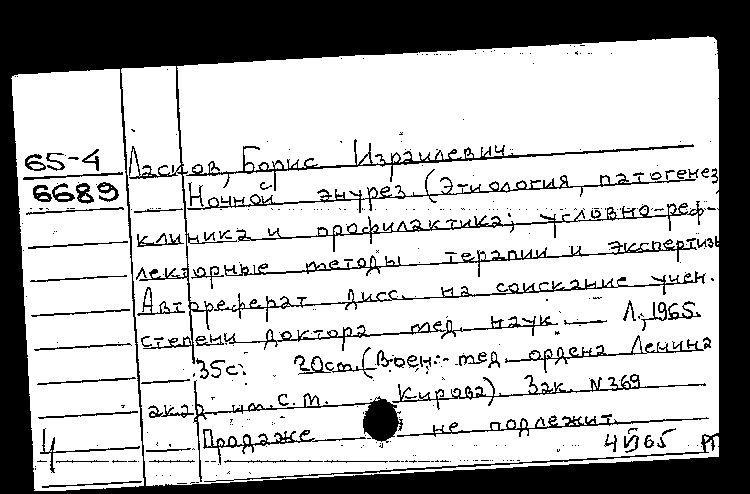 65-4 Ласков, Борис Израилевич.
6689 Ночной энурез. (Этиология, патогенез
клиника и профилактика; условно-реф-
лекторные методы терапии и экспертизы
Автореферат дисс. на соискание учен.
степени доктора мед. наук. Л., 1965.
35с. 20см. (Воен.-мед. ордена Ленина
акад. им. С. М. Кирова). Зак. N369
Продаже не подлежит.
4 VI 65